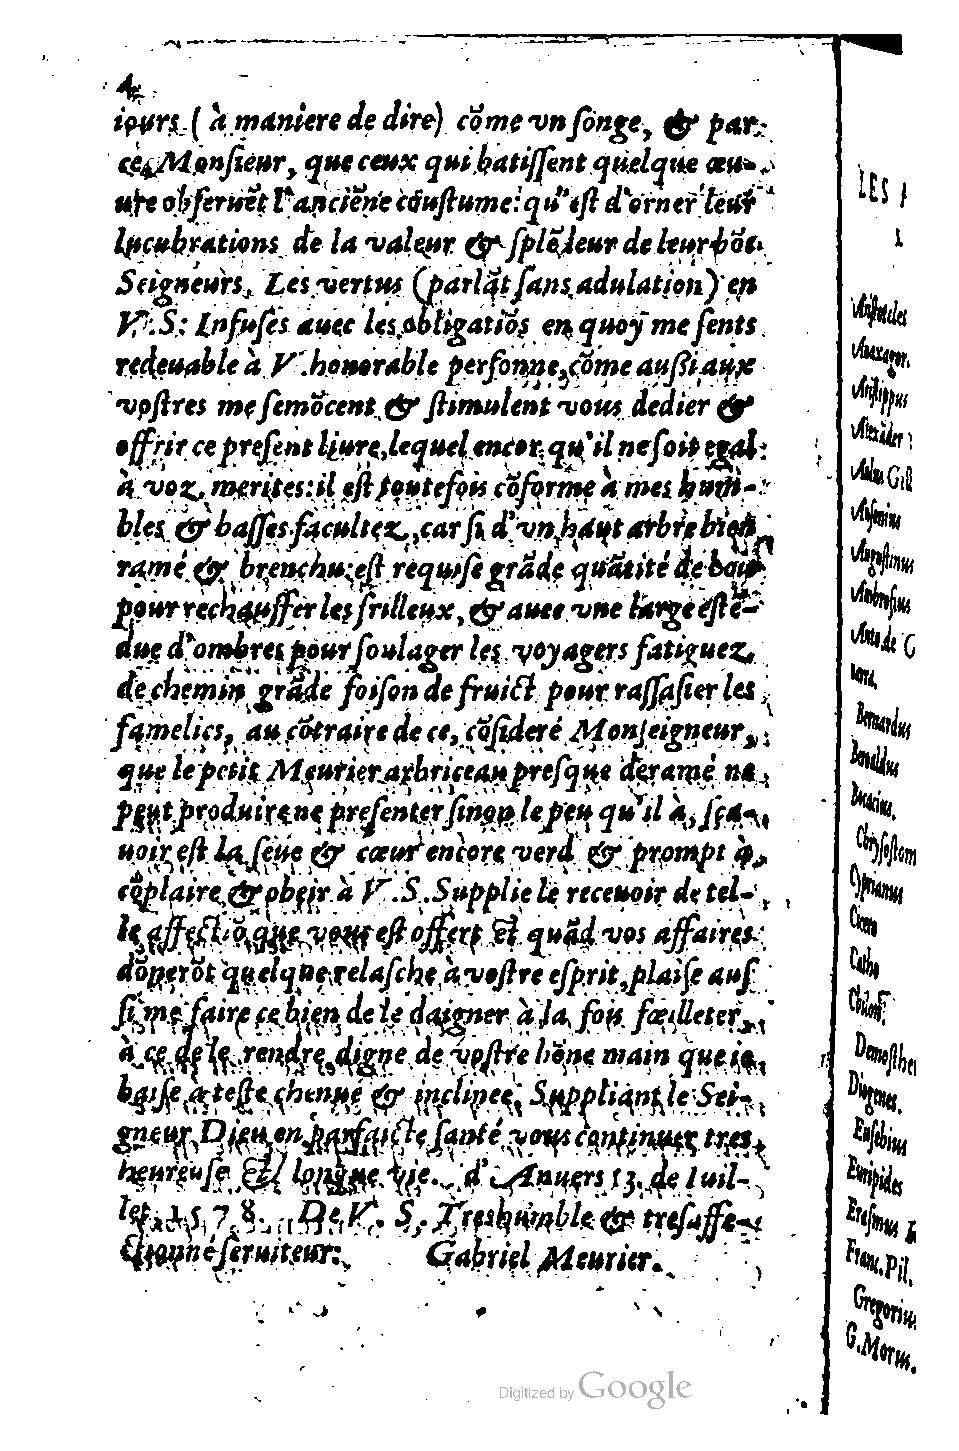 4
iours ( à maniere de dire) cõme vn ſonge, & par
ce, Monſieur, que ceux qui batiſſent quelque œu-
ure obſeruẽt l'anciẽne couſtume: qu'eſt d'orner leur
lucubrations de la valeur & ſplẽdeur de leur bõs
Seigneurs, Les vertus (parlãt ſans adulation) en
V. S: Infuſes auec les obligatiõs en quoy me ſents
redeuable à V. honorable perſonne, cõme auſsi aux
voſtres me ſemõcent & ſtimulent vous dedier &
offrir ce preſent liure, lequel encor qu'il ne ſoit egal
à voz merites: il eſt toutefois cõforme à mes humi-
bles & baſſes facultez, car ſi d'vn haut arbre bien
ramé & brenchu eſt requiſe grãde quãtité de bois
pour rechauffer les frilleux, & auec vne large eſtẽ-
due d'ombres pour ſoulager les voyagers fatiguez
de chemin grãde foiſon de fruict pour raſſaſier les
famelics, au cõtraire de ce, cõſideré Monſeigneur,
que le petit Meurier arbriceau preſque deramé ne
peut produire ne preſenter ſinon le peu qu'il à, ſça-
uoir eſt la ſeue & cœur encore verd & prompt à
cõplaire & obeir à V. S. Supplie le receuoir de tel-
le affectiõ que vous eſt offert Et quãd vos affaires
dõnerõt quelque relaſche à voſtre eſprit, plaiſe auſ
ſi me faire ce bien de le daigner à la fois fœilleter,
à ce de le rendre digne de voſtre bõne main que ie
baiſe à teſte chenue & inclinee, Suppliant le Sei-
gneur Dieu en parfaicte ſanté vous continuer tres
heureuſe Et longue vie. d'Anuers 13. de Iuil-
let 1578. De V. S. Treshumble & treſaffe-
ctionné ſeruiteur: Gabriel Meurier.
LES
Ariſtoteles
Anaxagor.
Ariſtippus
Alexãder
Aulus Gell
Auſonius
Auguſtinus
Ambroſius
Anto de G
Bernardus
Beroaldus
Bocacius.
Chryſoſtom
Cyprianus
Cicero
Catho
Demoſthe
Diogenes.
Euſebius
Euripides
Eraſmus
Franc. Pil.
Gregorius
G. Morus.
Digitized by Google